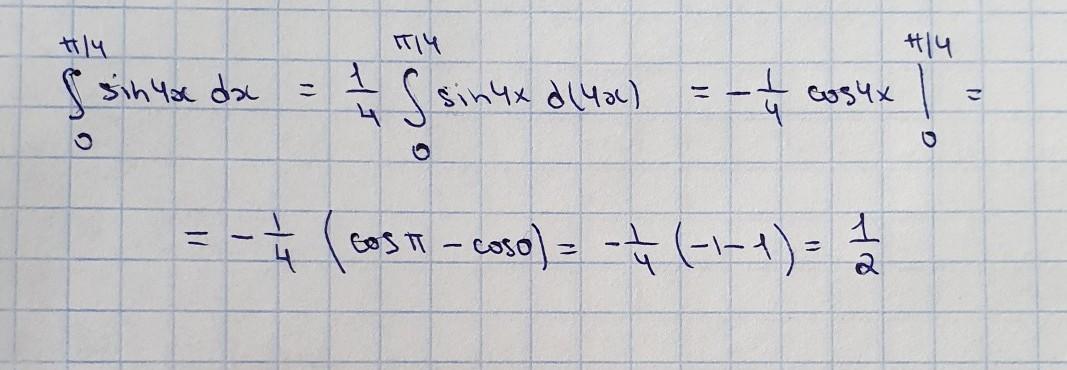 ∫₀^(π/4) sin4x dx = 1/4 ∫₀^(π/4) sin4x d(4x) = -1/4 cos4x |₀^(π/4) =
= -1/4 (cosπ - cos0) = -1/4 (-1-1) = 1/2